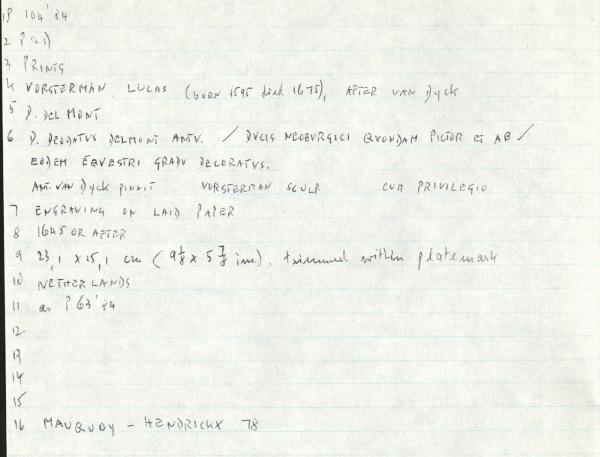 1 P 104'84
2 P a i)
3 PRINTS
4 VORSTERMAN, LUCAS (BORN 1595 died 1675), AFTER VAN Dyck
5 D. DEL MONT
6 D. DEODATVS DELMONT ANTV. / DVCIS NEOBVRGICI QVONDAM PICTOR ET AB /
EODEM EQVESTRI GRADV DECORATVS.
ANT. VAN Dyck pinxit VORSTERMAN SCULP. CUM PRIVILEGIO
7 ENGRAVING ON LAID PAPER
8 1645 OR AFTER
9 23,1 x 15,1 cm (9 1/8 x 5 7/8 in). trimmed within platemark
10 NETHERLANDS
11 as P 63'84
12
13
14
15
16 MAUQUOY - HENDRICKX 78